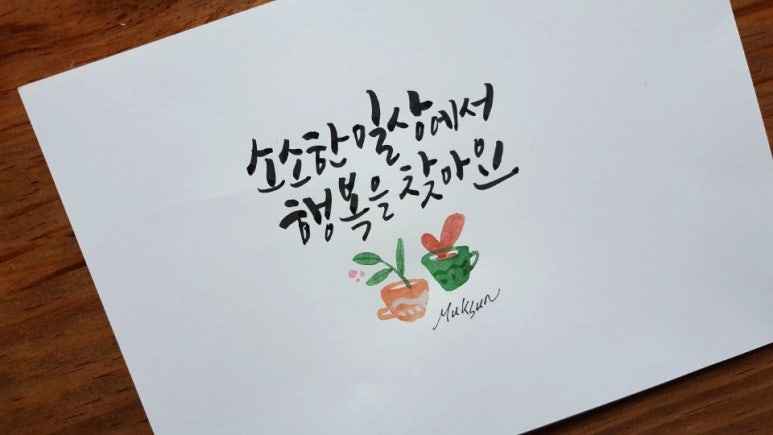 소소한 일상에서
행복을 찾아요
Muksun